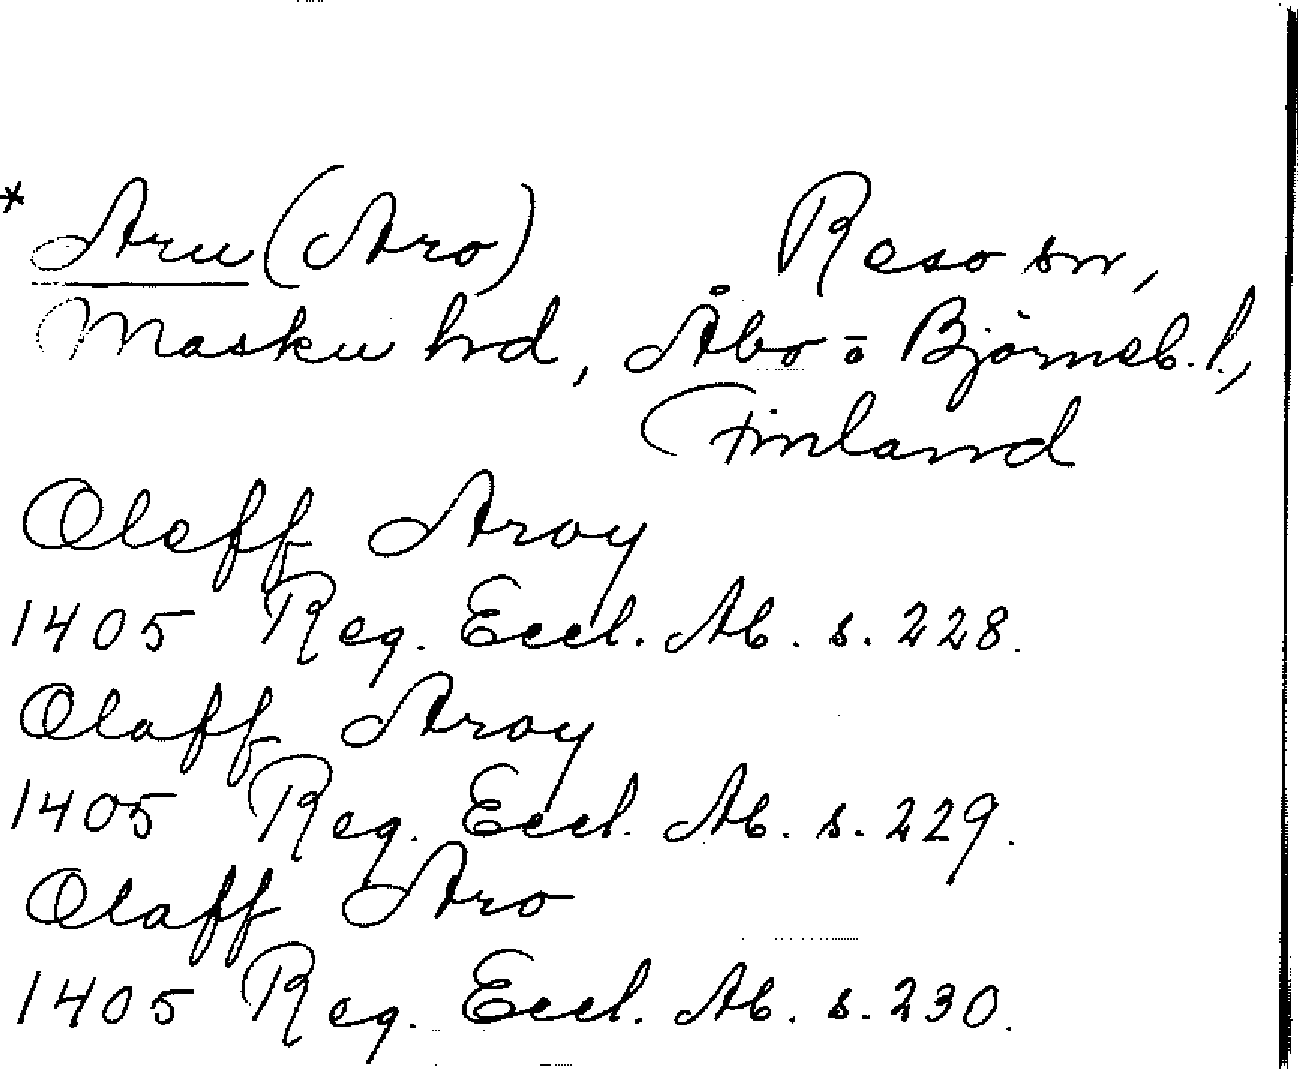 * Aru (Aro) Reso sn,
Masku hd, Åbo o Björneb. l.,
Finland
Oleff Aroy
1405 Reg. Eccl. Ab. s. 228.
Olaff Aroy
1405 Reg. Eccl. Ab. s. 229.
Olaff Aro
1405 Reg. Eccl. Ab. s. 230.